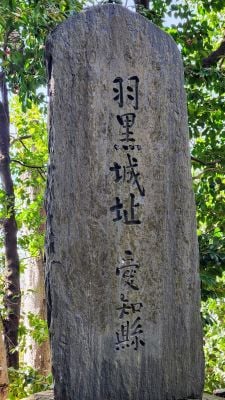 羽黒城址 愛知縣